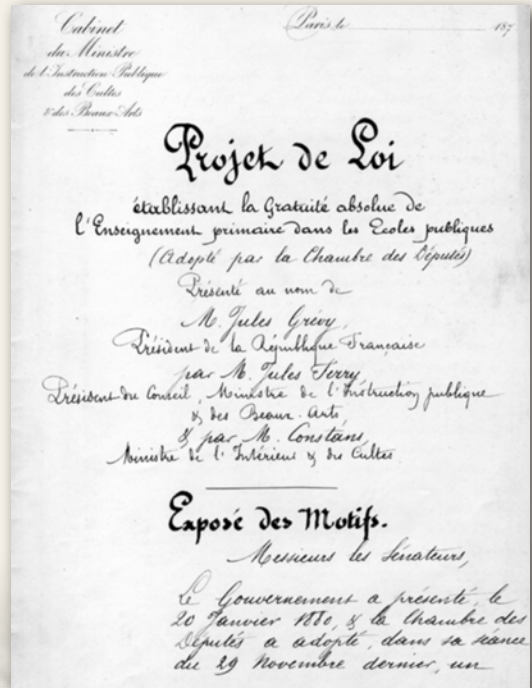 Cabinet
du Ministre
de l'Instruction Publique
des Cultes
& des Beaux-Arts
Paris, le 187
Projet de Loi
établissant la Gratuité absolue de
l'Enseignement primaire dans les Ecoles publiques
(Adopté par la Chambre des Députés)
Présenté au nom de
M. Jules Grévy,
Président de la République Française
par M. Jules Ferry
Président du Conseil, Ministre de l'Instruction publique
& des Beaux-Arts
& par M. Constans,
Ministre de l'Intérieur & des Cultes
Exposé des Motifs.
Messieurs les Sénateurs,
Le Gouvernement a présenté, le
20 Janvier 1880, & la Chambre des
Députés a adopté, dans sa séance
du 29 Novembre dernier, un